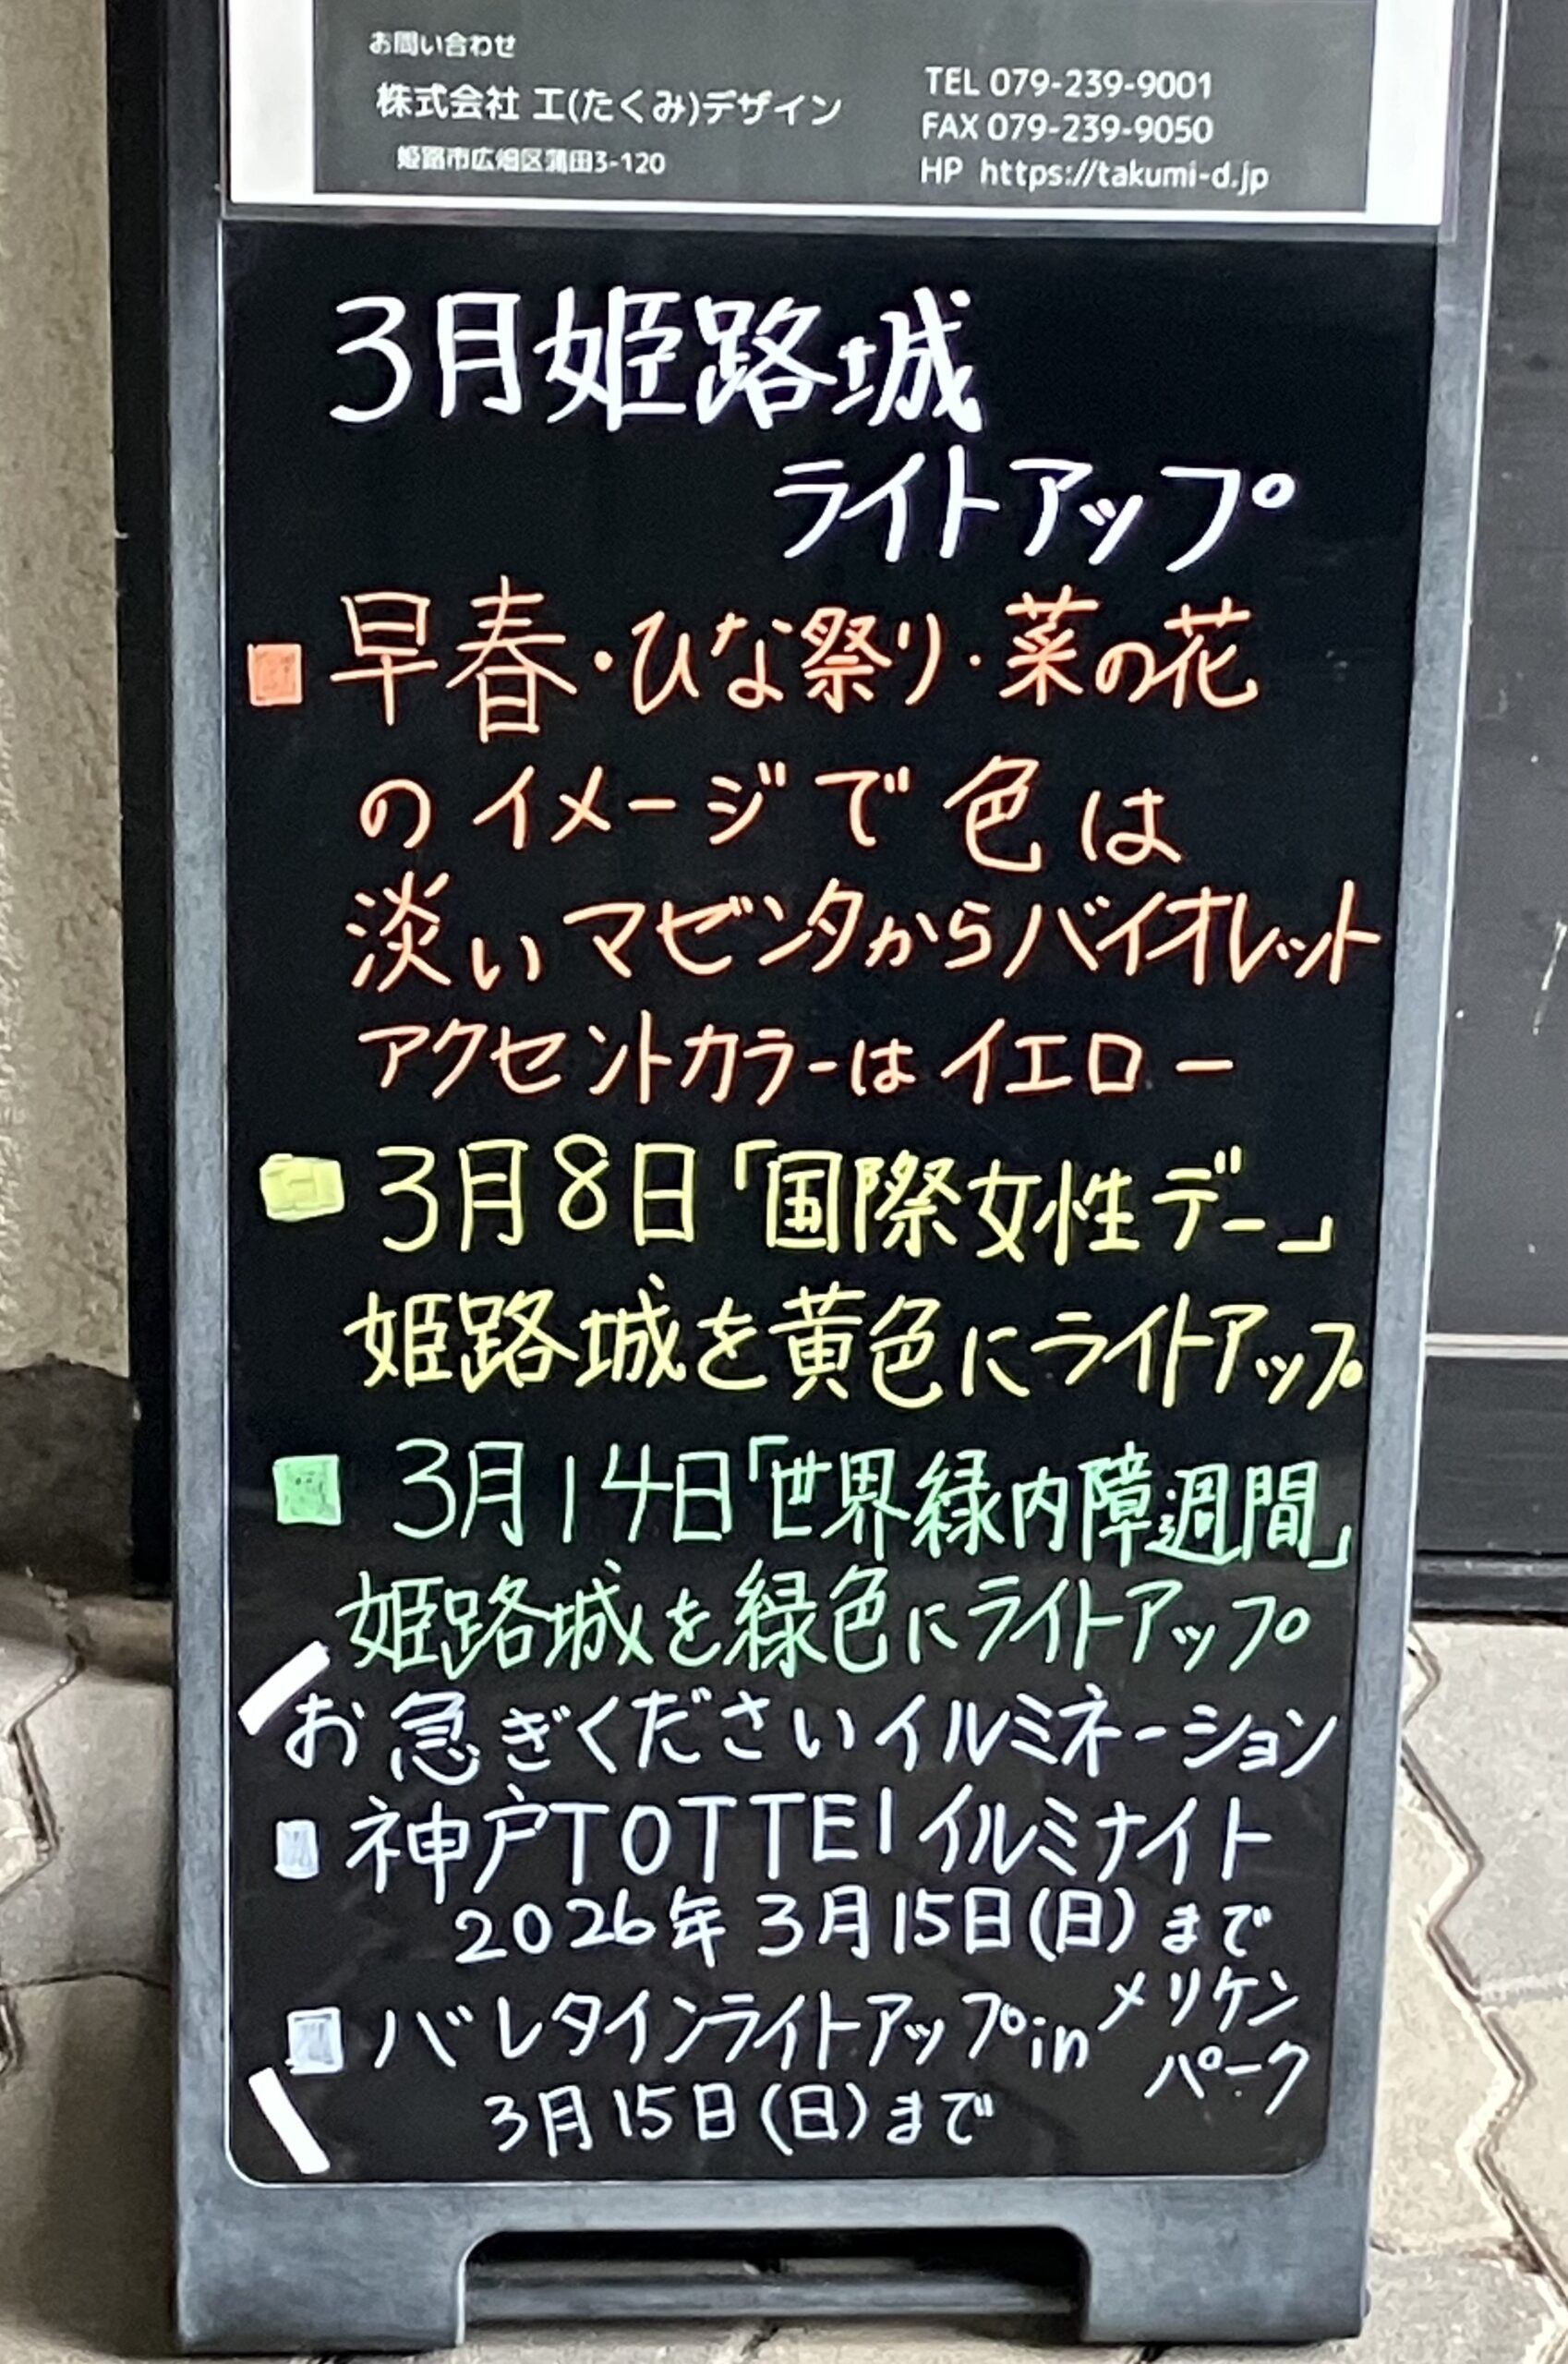 お問い合わせ
株式会社 工(たくみ)デザイン
姫路市広畑区蒲田3-120
TEL 079-239-9001
FAX 079-239-9050
HP https://takumi-d.jp
3月姫路城
ライトアップ
早春・ひな祭り・菜の花
のイメージで色は
淡いマゼンタからバイオレット
アクセントカラーはイエロー
3月8日「国際女性デー」
姫路城を黄色にライトアップ
3月14日「世界緑内障週間」
姫路城を緑色にライトアップ
お急ぎくださいイルミネーション
神戸TOTTEIイルミナイト
2026年3月15日(日)まで
バレタインライトアップinメリケン
パーク
3月15日(日)まで